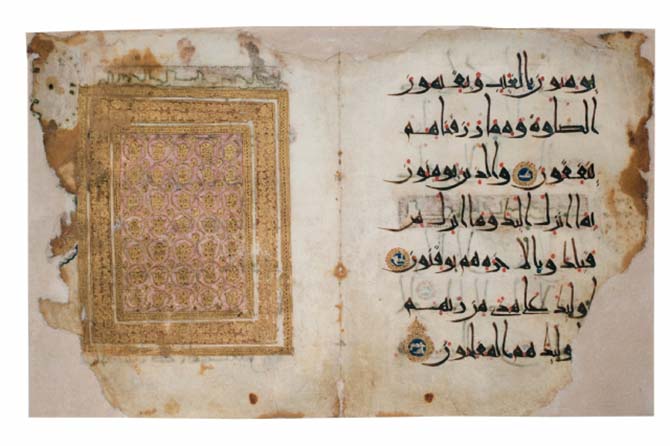 يومنون بالغيب ويقيمون
الصلوة ومما رزقناهم
ينفقون والذين يومنون
بما انزل اليك وما انزل من
قبلك وبالاخرة هم يوقنون
اوليك على هدى من ربهم
واوليك هم المفلحون